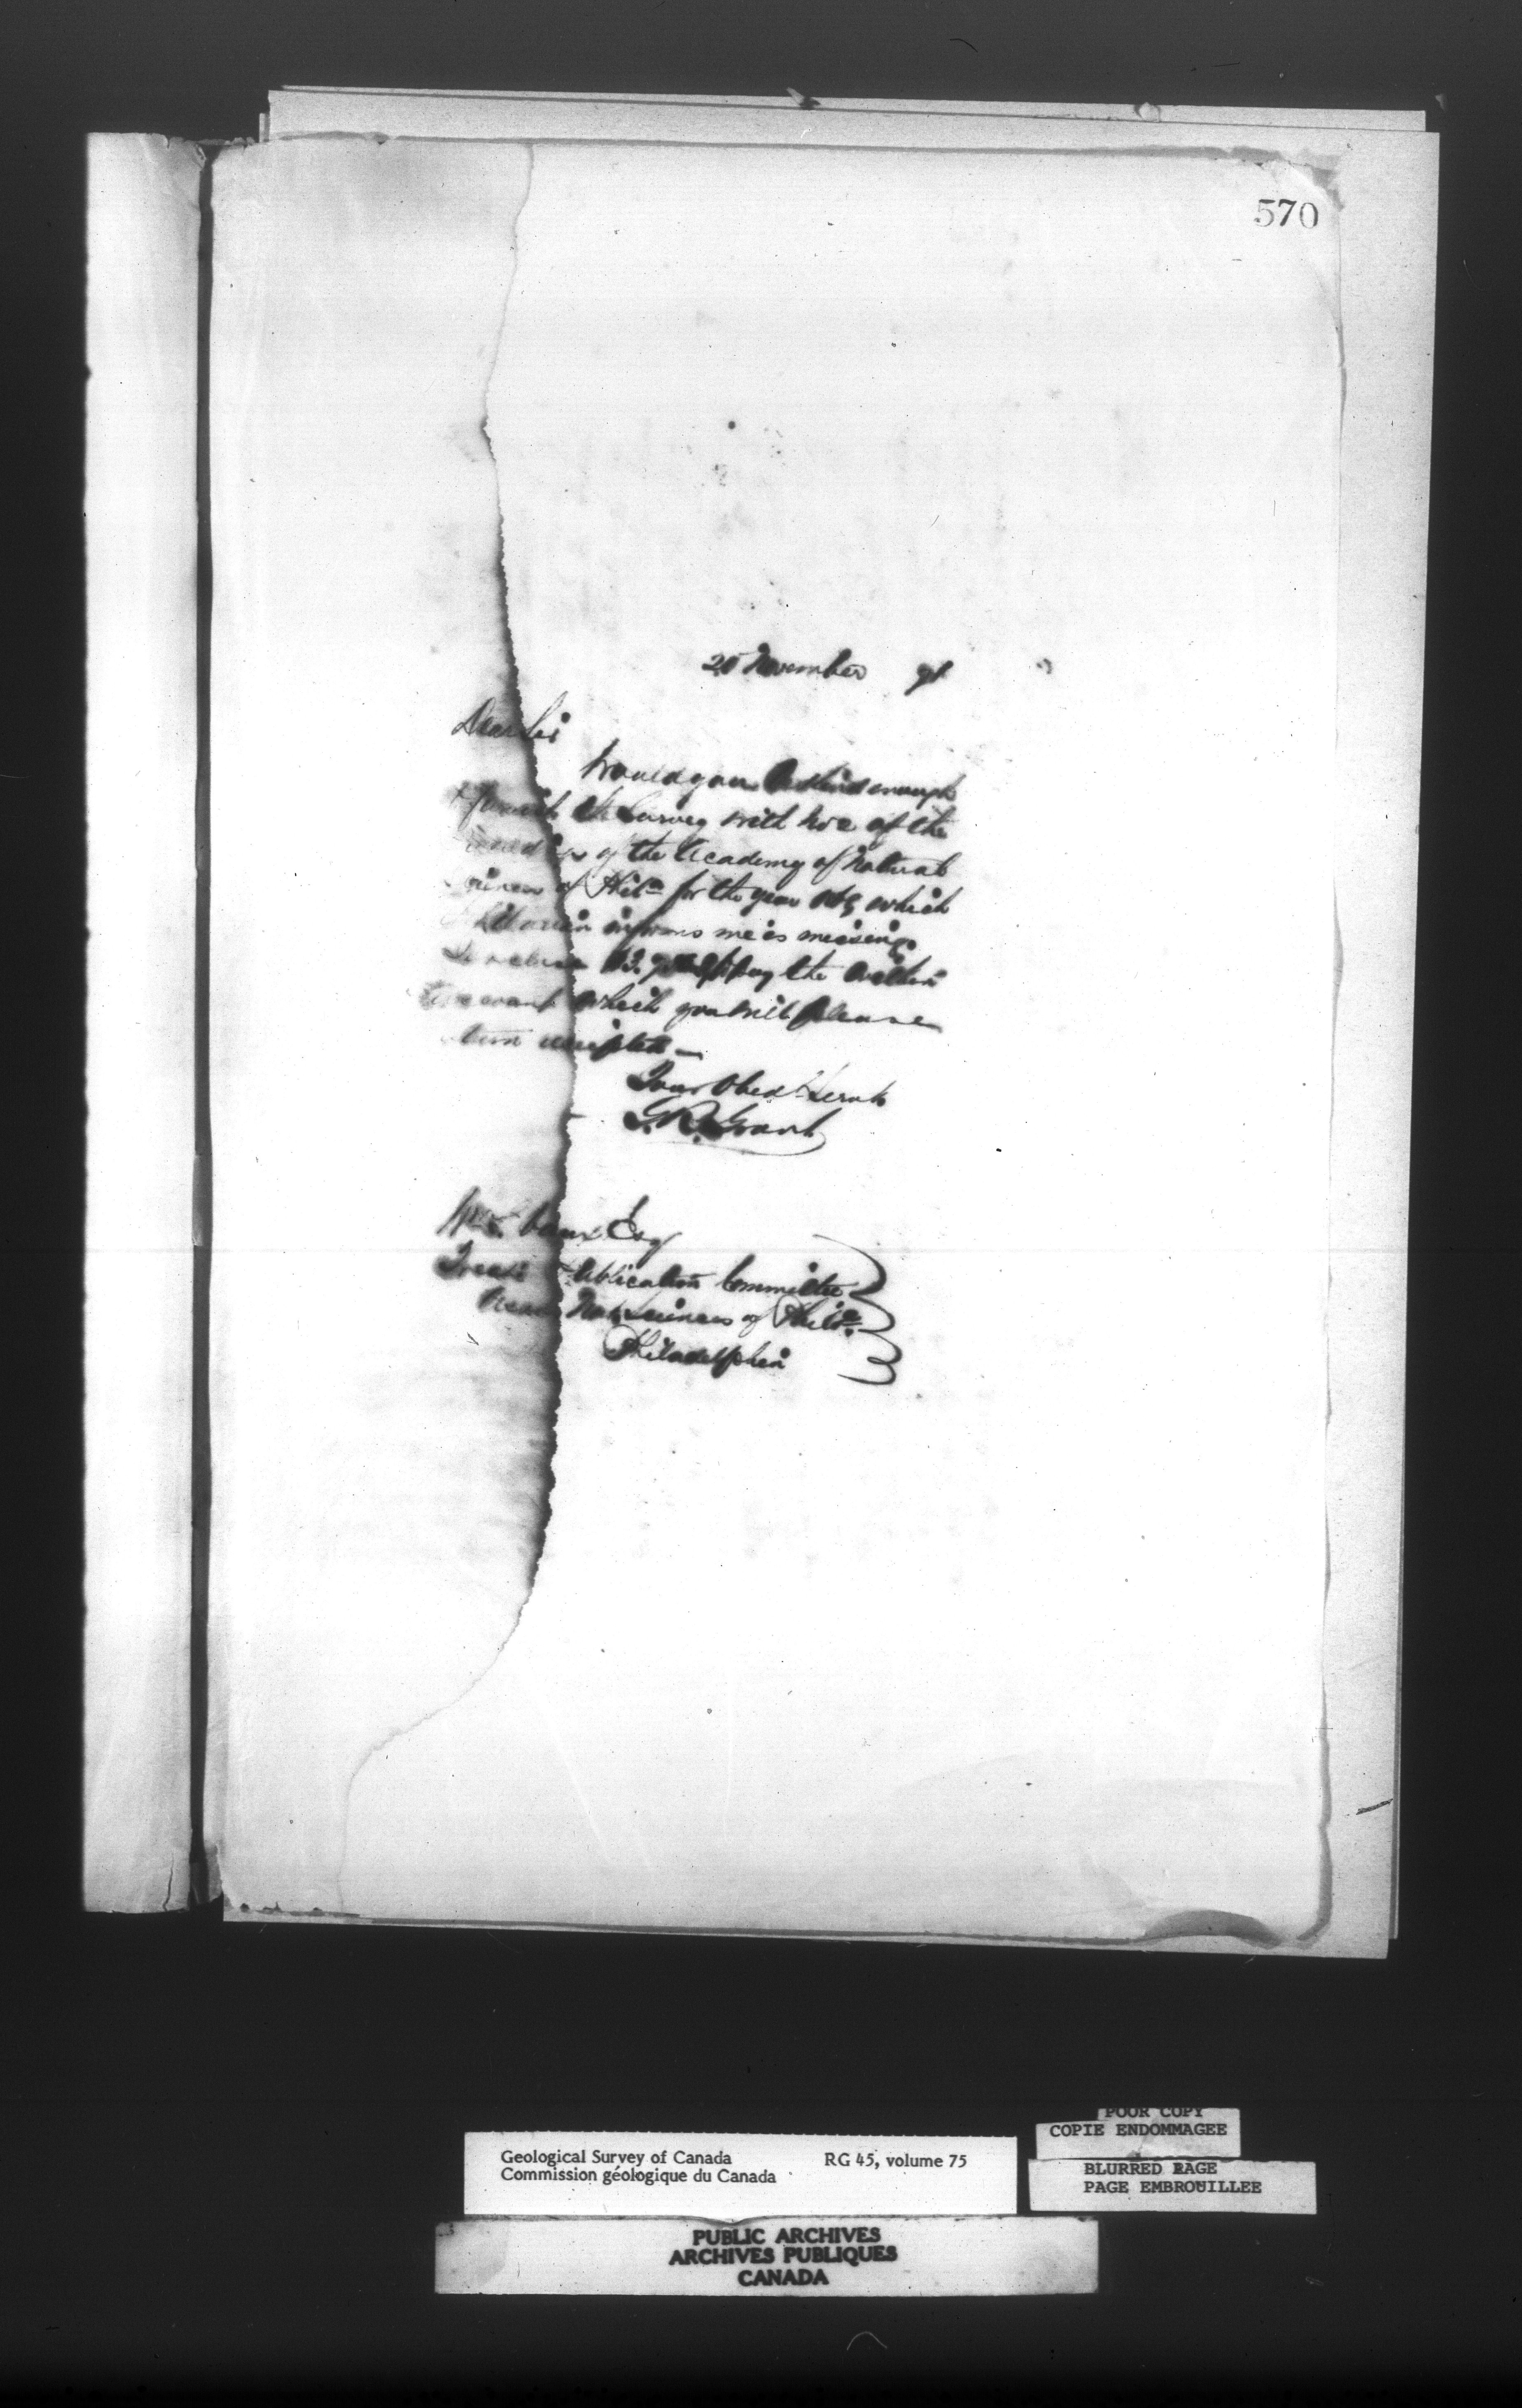 570
25 November 71
Dear Sir
Would you be kind enough
to furnish the Survey with No 2 of the
of the Academy of Natural
of Phila for the year which
Librarian informs me is missing
to pay the within
account which you will please
return receipted —
Your Obed Servt
G. R. Grant
Wm. S. Vaux Esq
Treasr Publication Committee
Acad Nat. Sciences of Phila.
Philadelphia
POOR COPY
COPIE ENDOMMAGEE
BLURRED PAGE
PAGE EMBROUILLEE
Geological Survey of Canada RG 45, volume 75
Commission géologique du Canada
PUBLIC ARCHIVES
ARCHIVES PUBLIQUES
CANADA